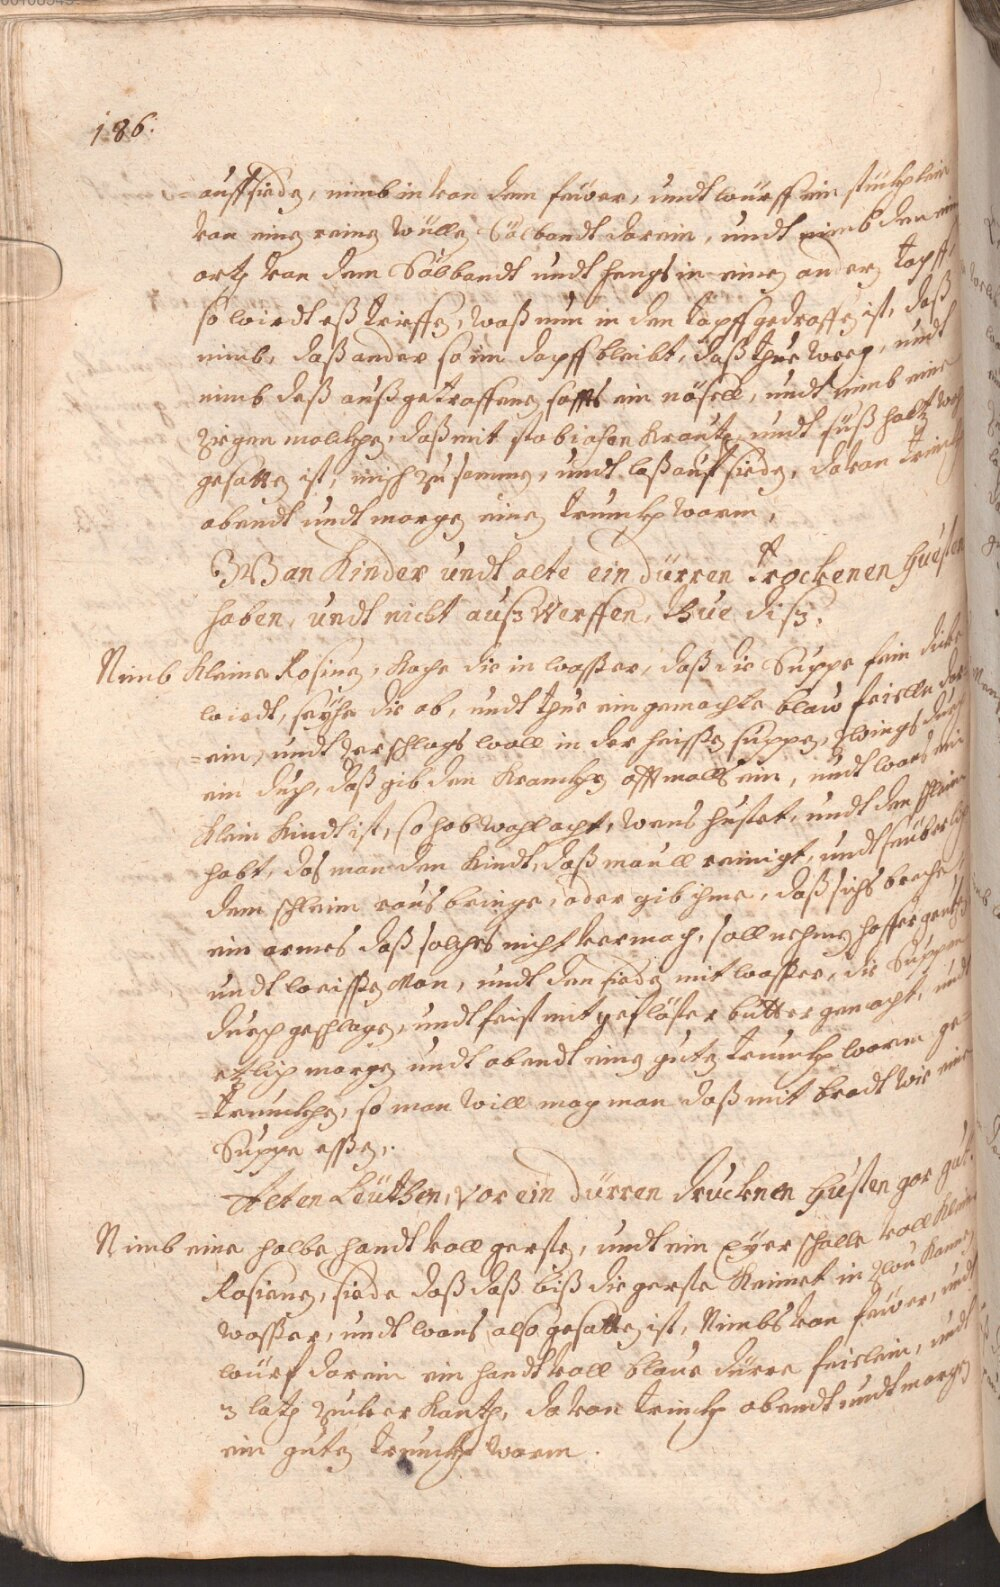 186.
= auffsieden, nimb in von dem feüer, undt würff ein stücklein
von einen reinen wüllen Sölbandt darein, undt nimb den ein
orth von dem Sölbandt undt hengs in einen andern topff,
so wirdt eß trieffen, waß nun in den topff gedroffen ist, daß
nimb, daß ander so im dopff bleibt, daß thue weeg, undt
nimb deß außgetroffenen saffts ein nösell, undt nimb eine
Ziegen molcken, daß mit scabiosen Kraut, undt süß holtz
gesotten ist, misch zu samen, undt laß auff sieden, davon trinck
abendt undt morgen einen trunckh warm,
Wan Kinder undt alte ein dürren trockenen Huesten
haben, undt nicht auß Werffen, thue diß.
Nimb Kleine Rosinen, Koche die in waßer, daß die Suppe fein dicke
wirdt, seyhe die ab, undt thue ein gemachte blaw feielle dar
= ein, undt Zerschlags woll in der heissen suppen, Zwings durch
ein duch, daß gib den Krancken offtmalls ein, undt wans ein
Klein Kindt ist, so hab wohl acht, wens hustet, undt den schleim
habt, das man den Kindt, daß maull reinigt, undt seüberlich
dem schleim raus bringe, oder gib ihme, daß sichs breche,
ein armes daß solches nicht vermag, soll nehmen haffer grütz
undt weissen Mon, undt den sieden mit waßer, die Suppen
durch geschlagen, undt feist mit geslöster butter gemacht, undt
etlich morgen undt abendt einen guten trunckh warm ge
= truncken, so man will mag man daß mit brodt wie eine
Suppe essen,.
Alten Leüthen, vor ein dürren drucknen Husten gor gut.
Nimb eine halbe handt voll gersten, undt ein Eyer schalle voll Kleine
Rosienen, siede daß daß biß die gerste Keimet in zwu Kannen
Waßer, undt wans also gesotten ist, Nimbs von feüer, undt
würf darein ein handt voll blaue dürre feielein, undt
3 loth Zucker Kanth, davon trinckh abendt undt morgen
ein guten trunckh warm.